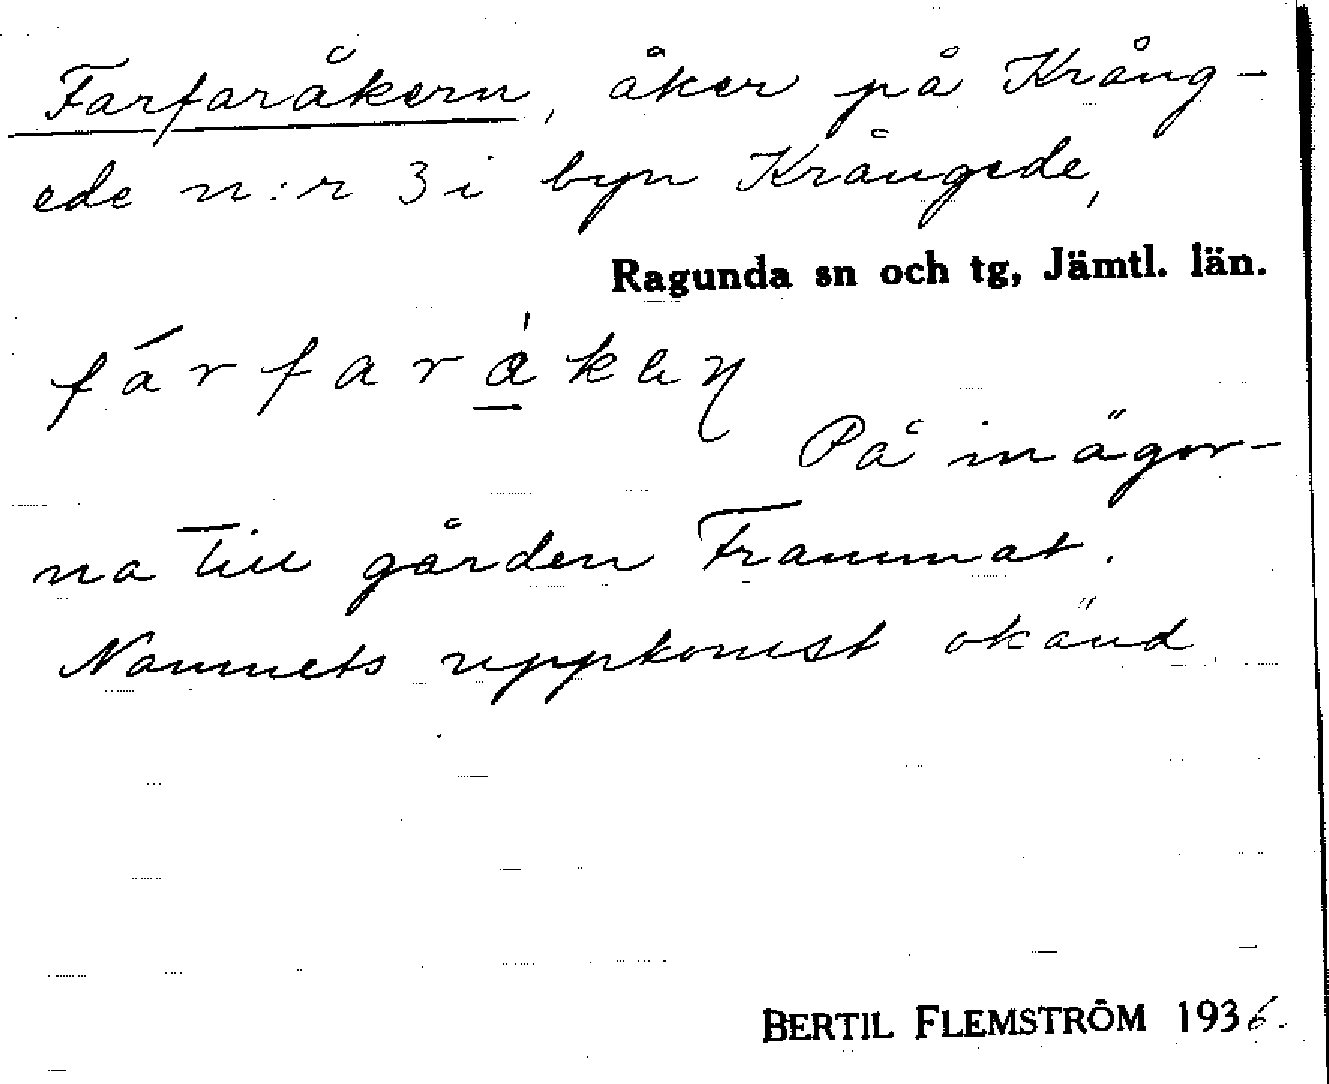 Farfaråkern, åker på Krång-
ede n:r 3 i byn Krångede,
Ragunda sn och tg, Jämtl. län.
På inägor-
na till gården Frammat.
Namnets uppkomst okänd
BERTIL FLEMSTRÖM 1936.